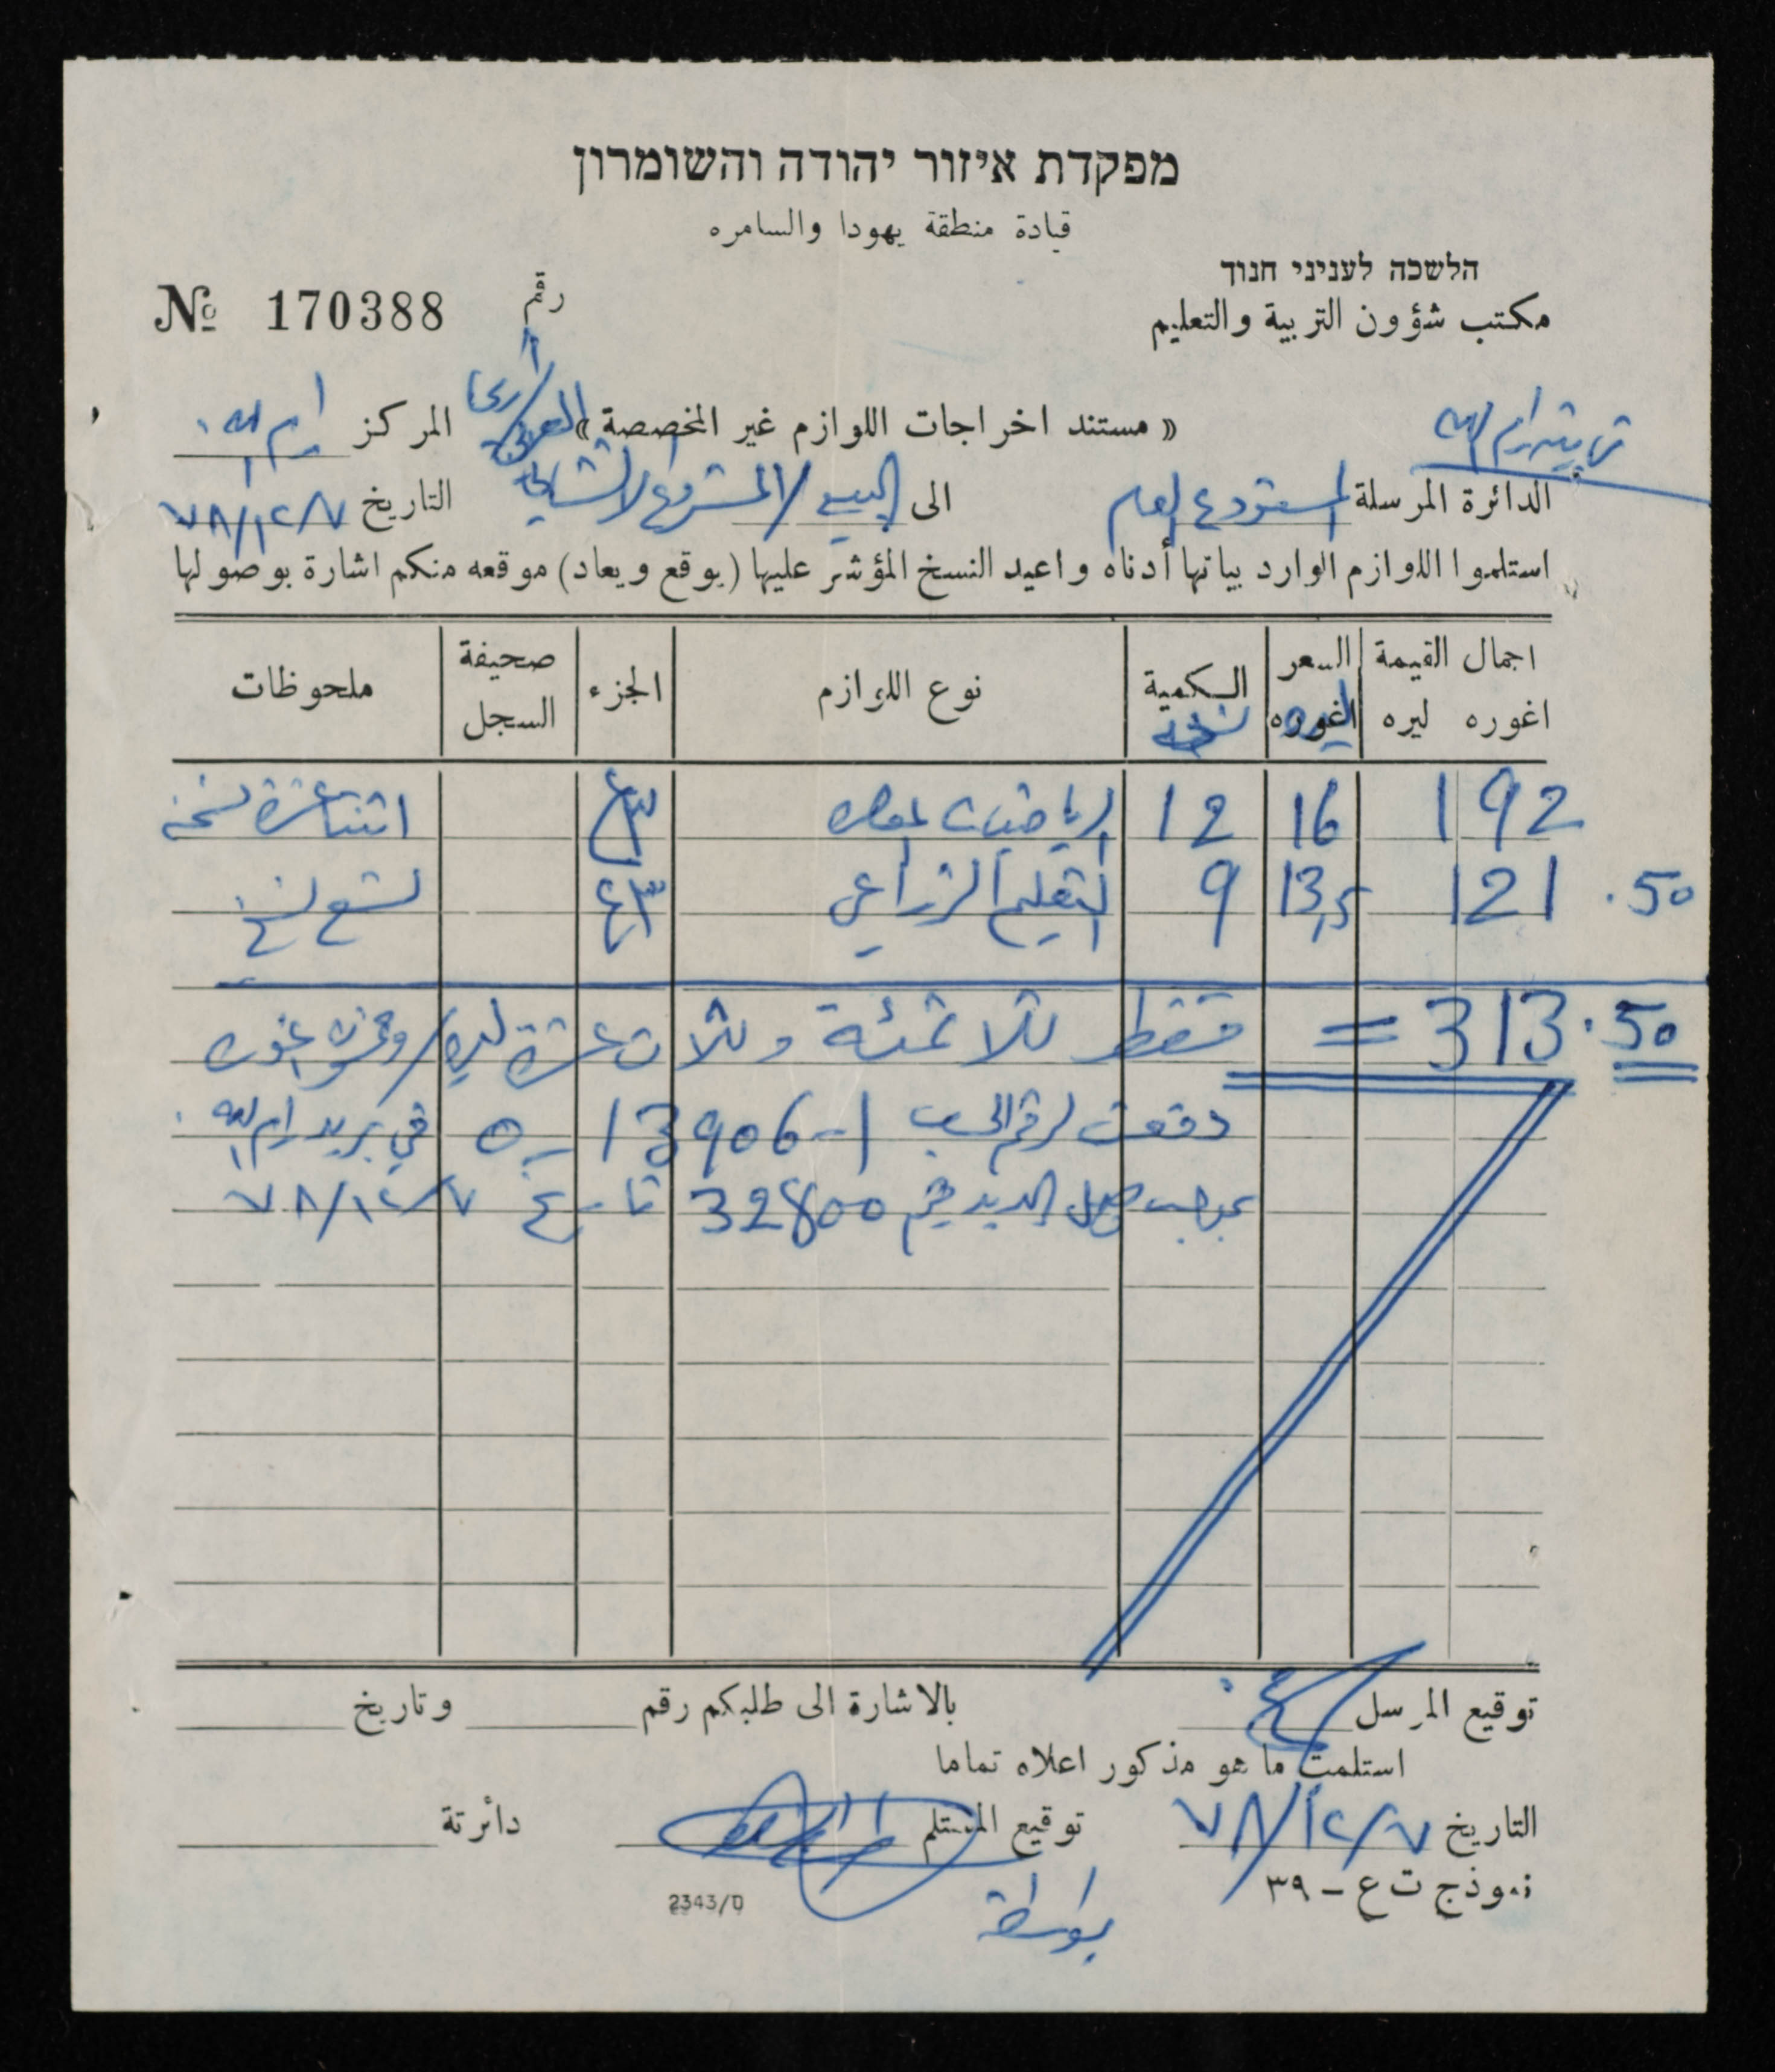 מפקדת איזור יהודה והשומרון
قيادة منطقة يهودا والسامره
הלשכה לעניני חנוך
مكتب شؤون التربية والتعليم
رقم № 170388
تربية رام الله
« مستند اخراجات اللوازم غير المخصصة » المركز رام الله
الدائرة المرسلة المستودع العام الى البيع / المشروع الانشائي العربي / اريحا التاريخ ٧٨/١٢/٧
استلموا اللوازم الوارد بيانها أدناه واعيد النسخ المؤشر عليها (يوقع ويعاد) موقعه منكم اشارة بوصولها
اجمال القيمة اغوره ليره السعر اغوره ليره الكمية نسخة نوع اللوازم الجزء صحيفة السجل ملحوظات
192 16 12 الرياضيات ٣ع اثنتا عشرة نسخة
121 .50 13,5 9 التعليم الزراعي ٣ع تسع نسخ
313.50 = فقط ثلاثمئة وثلاث عشرة ليرة وخمسون اغورة
دفعت لرقم الحساب 1-13906-5 في بريد رام الله
بموجب وصل البريد رقم 32800 تاريخ ٧٨/١٢/٧
توقيع المرسل بالاشارة الى طلبكم رقم وتاريخ
استلمت ما هو مذكور اعلاه تماما
التاريخ ٧٨/١٢/٧ توقيع المستلم دائرتة
نموذج ت ع – ٣٩
2343/D
بواسطة